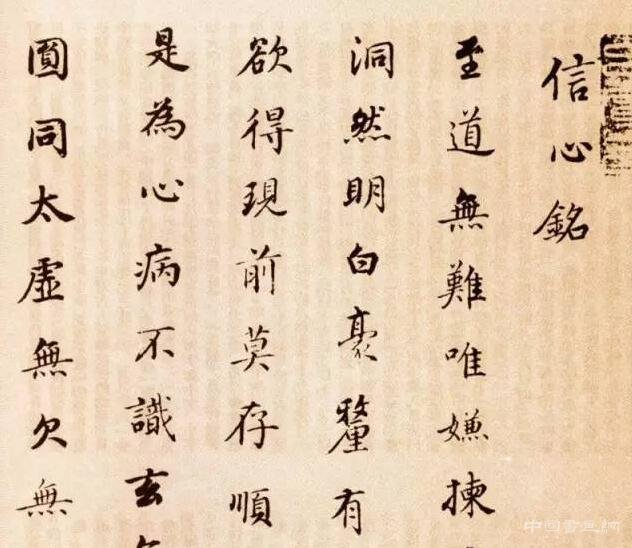 信心銘
至道無難唯嫌揀
洞然明白毫釐有
欲得現前莫存順
是為心病不識玄
圓同太虛無欠無
中国书画網